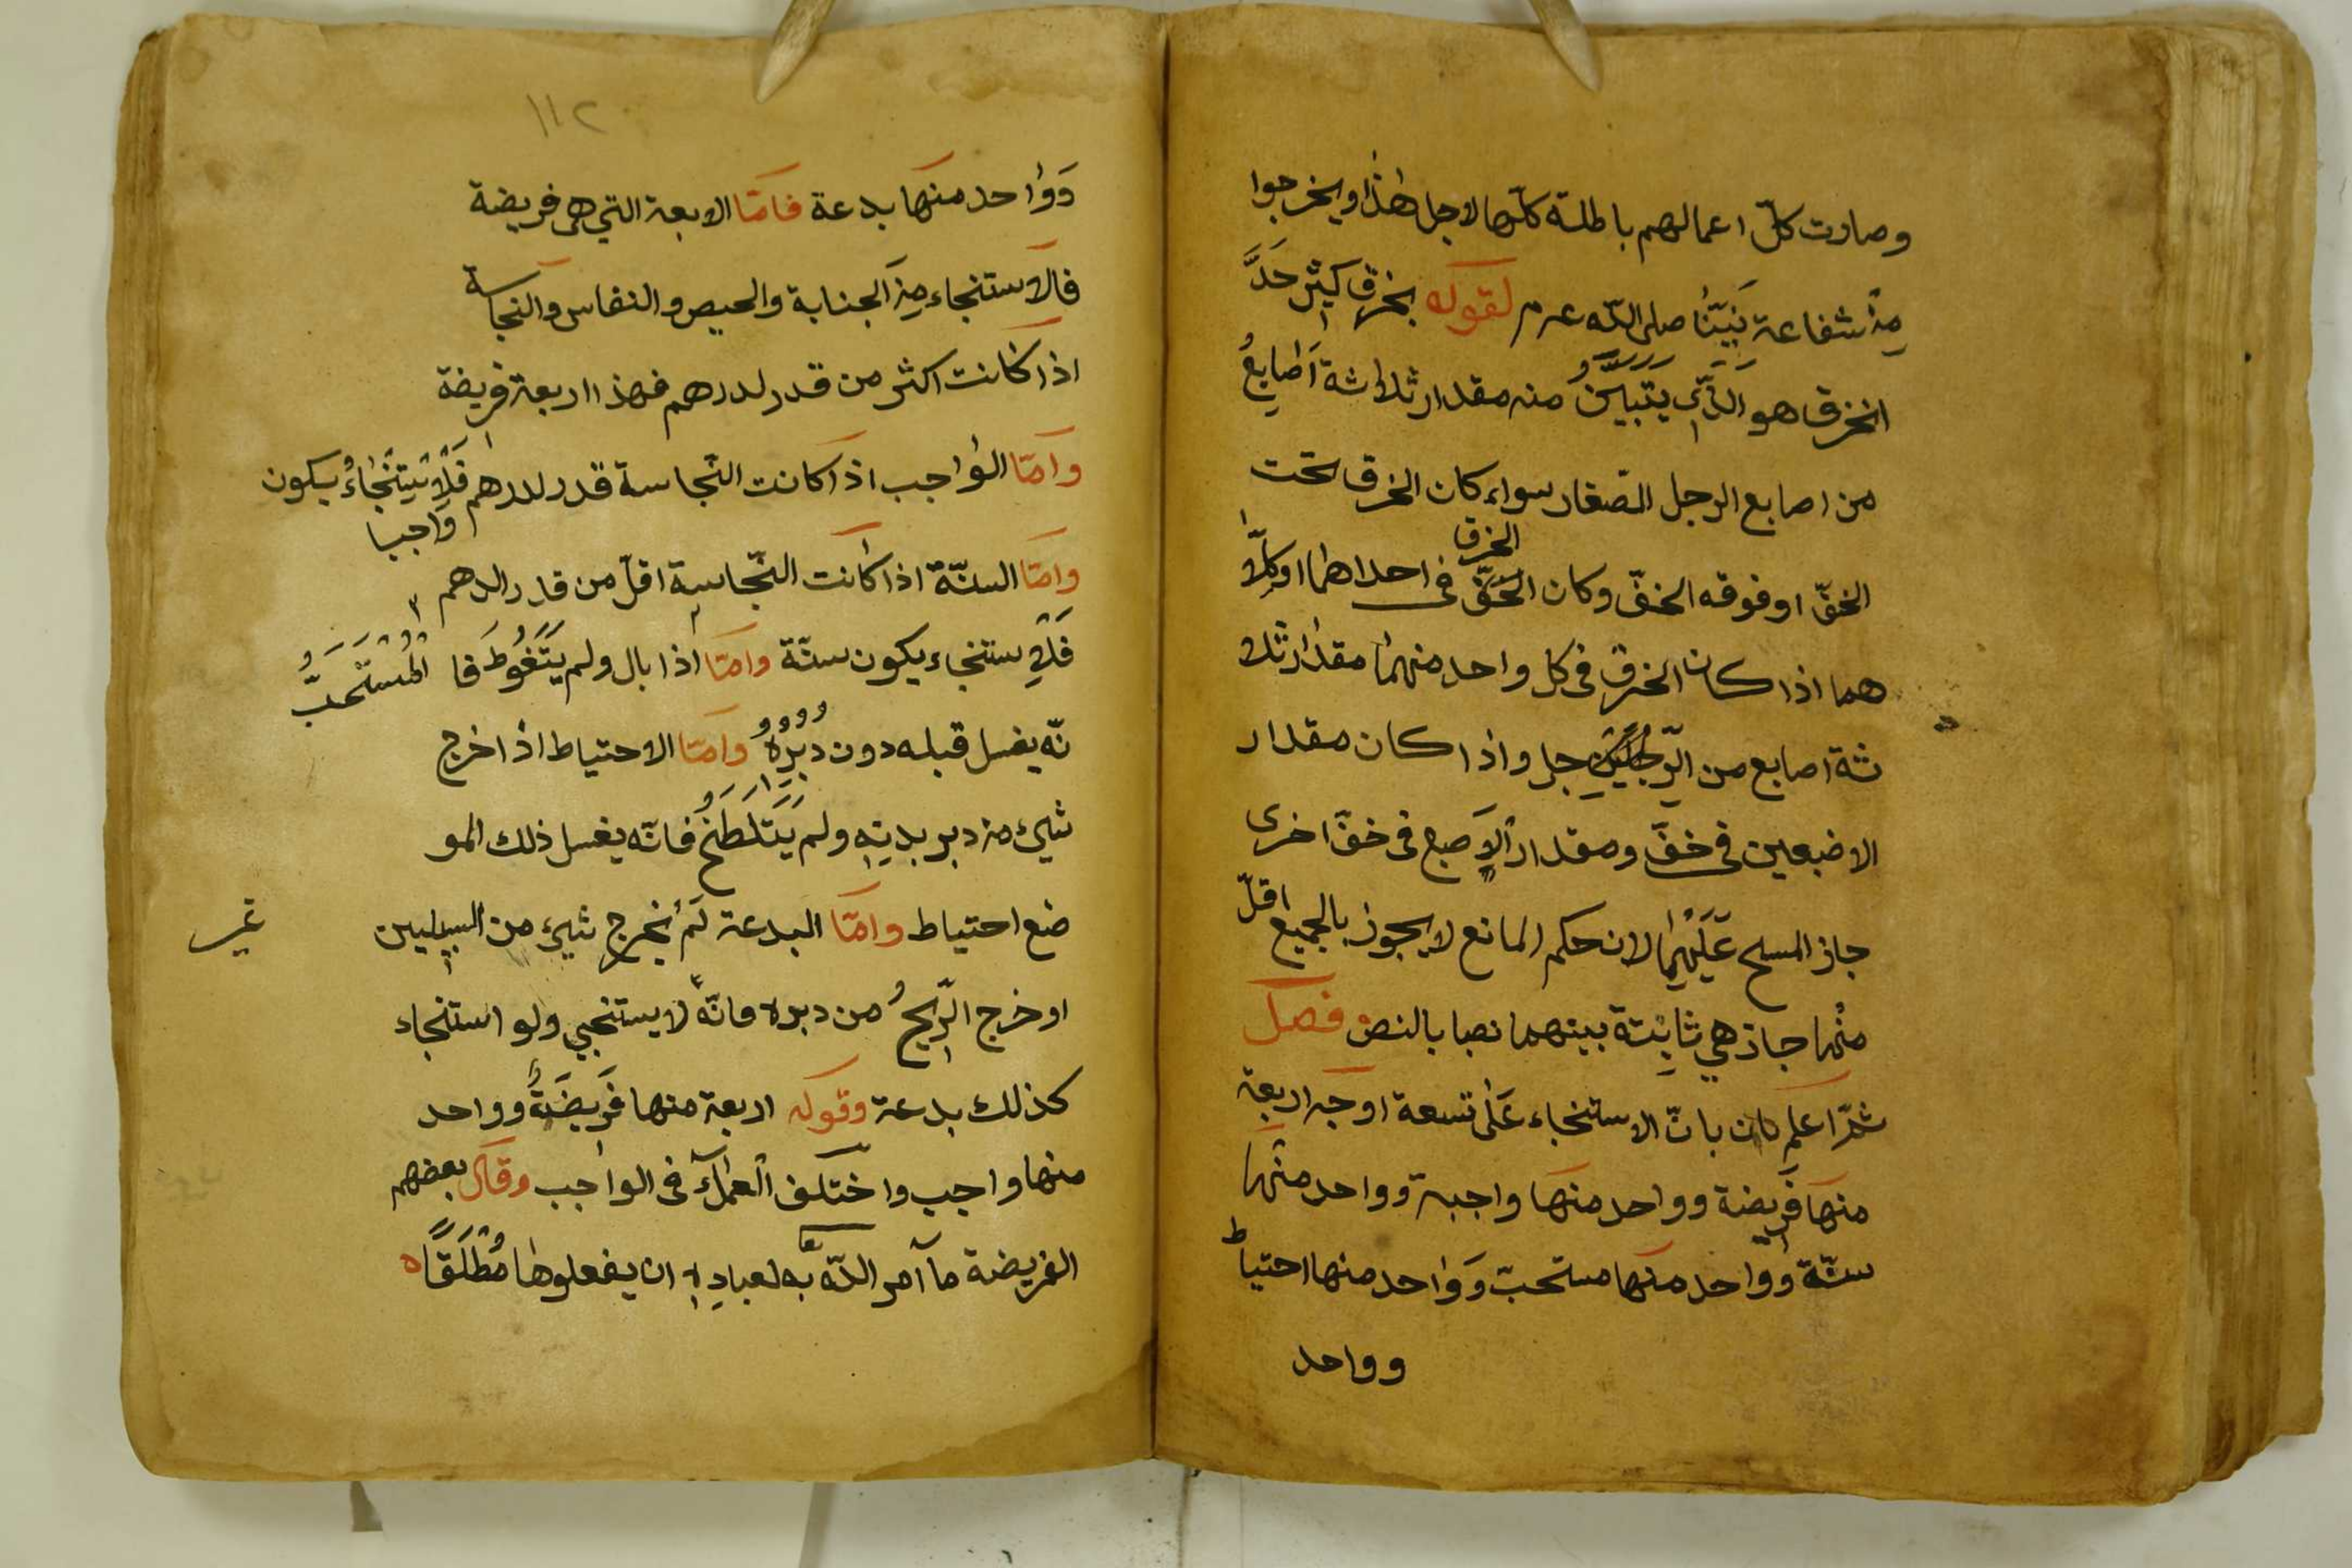 وصارت كلّ اعمالهم باطلة كلّها لاجل هذا ويخرجوا
مِنْ شفاعة نَبِيّنا صلى اللّه ع م لقوله بخرق كثير حَدَّ
الخرق هو الَّذِي يَتَبَيَّنُ منه مقدار ثلاثة اَصَابِعُ
من اصابع الرجل الصّغار سواء كان الخرق تحت
الخفّ او فوقه الخفّ وكان الخفّ فى احداهما او كِلَا
الخرق
هما اذا كان الخرق فى كل واحد منهما مقدار ثلا
ثة اصابع من الرِّجل واذا كان مقدار
الاصبعين فى خفّ ومقدار الاِصبع فى خفّ اخرى
جاز المسح عَلَيْهِمَا لان حكم المانع لا يجوز بالجميع اقلّ
منْها جاز هي ثابِتة بينهما نصبا بالنص فصل
ثمّ اعلم بانّ الاستنجاء عَلَى تسعة اوجه اربعة
منها فَرِيضة وواحد منها واجبة وواحد منها
سنّة وواحد منها مستحبّ وَوَاحد منها احتياط
وواحد
١١٢
وَوَاحد منها بدعة فامّا الاربعة التي هى فريضة
فالاستنجاء مِنَ الجنابة والحيص والنفاس والنجاسة
اذا كانت اكثر من قدر لدرهم فهذا اربعة فريضة
وامّا الوَاجب اذا كانت النّجاسة قدر لدرهم فَلْاِسْتِنْجَاءُ يكون
وَاجبا
وامّا السنّة اذا كانت النّجاسة اقلّ من قدر الدهم
فَلْاِستنجاء يكون سنّة وامّا اذا بال ولم يَتَغَوَّط فَا المُسْتَحَبُّ
نّه يغسل قبله دون دُبُرِهُ وامّا الاحتياط اذا خرج
شيئ من دبر بدنِه ولم يَتَلَطَّخُ فانّه يغسل ذلك المو
ضع احتياط وامّا البدعة لَم يخرج شيئ من السبيلين
غير
او خرج الرِّيحُ من دبره فانّهُ لا يستنجي ولو استنجاء
كذلك بدعة وقوله اربعة منها فَرِيضَةٌ وواحد
منها واجب واختلف العلمآء فى الواجب وقال بعضهم
الفريضة مآ امر اللّه به لعبادِه ان يفعلوها مُطْلَقًا ه